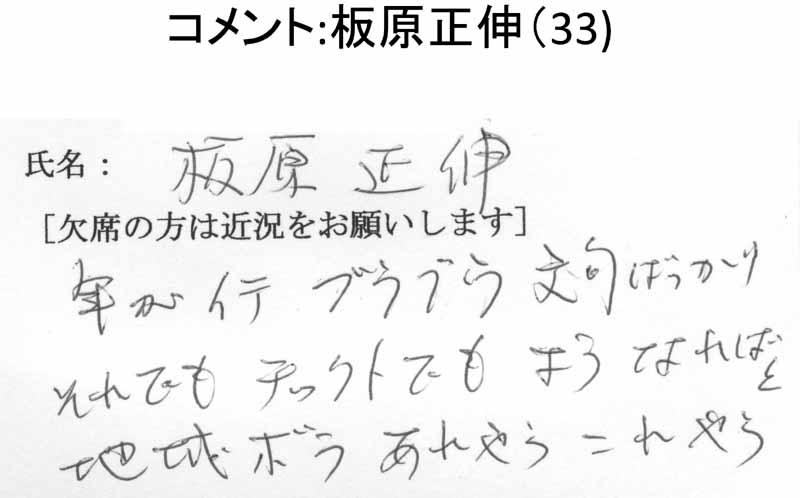 コメント:板原正伸(33)
氏名： 板原正伸
[欠席の方は近況をお願いします]
年が行 ブラブラ 文句ばっかり
それでも チックトでも よう なればと
地域ボラ あれやら これやら